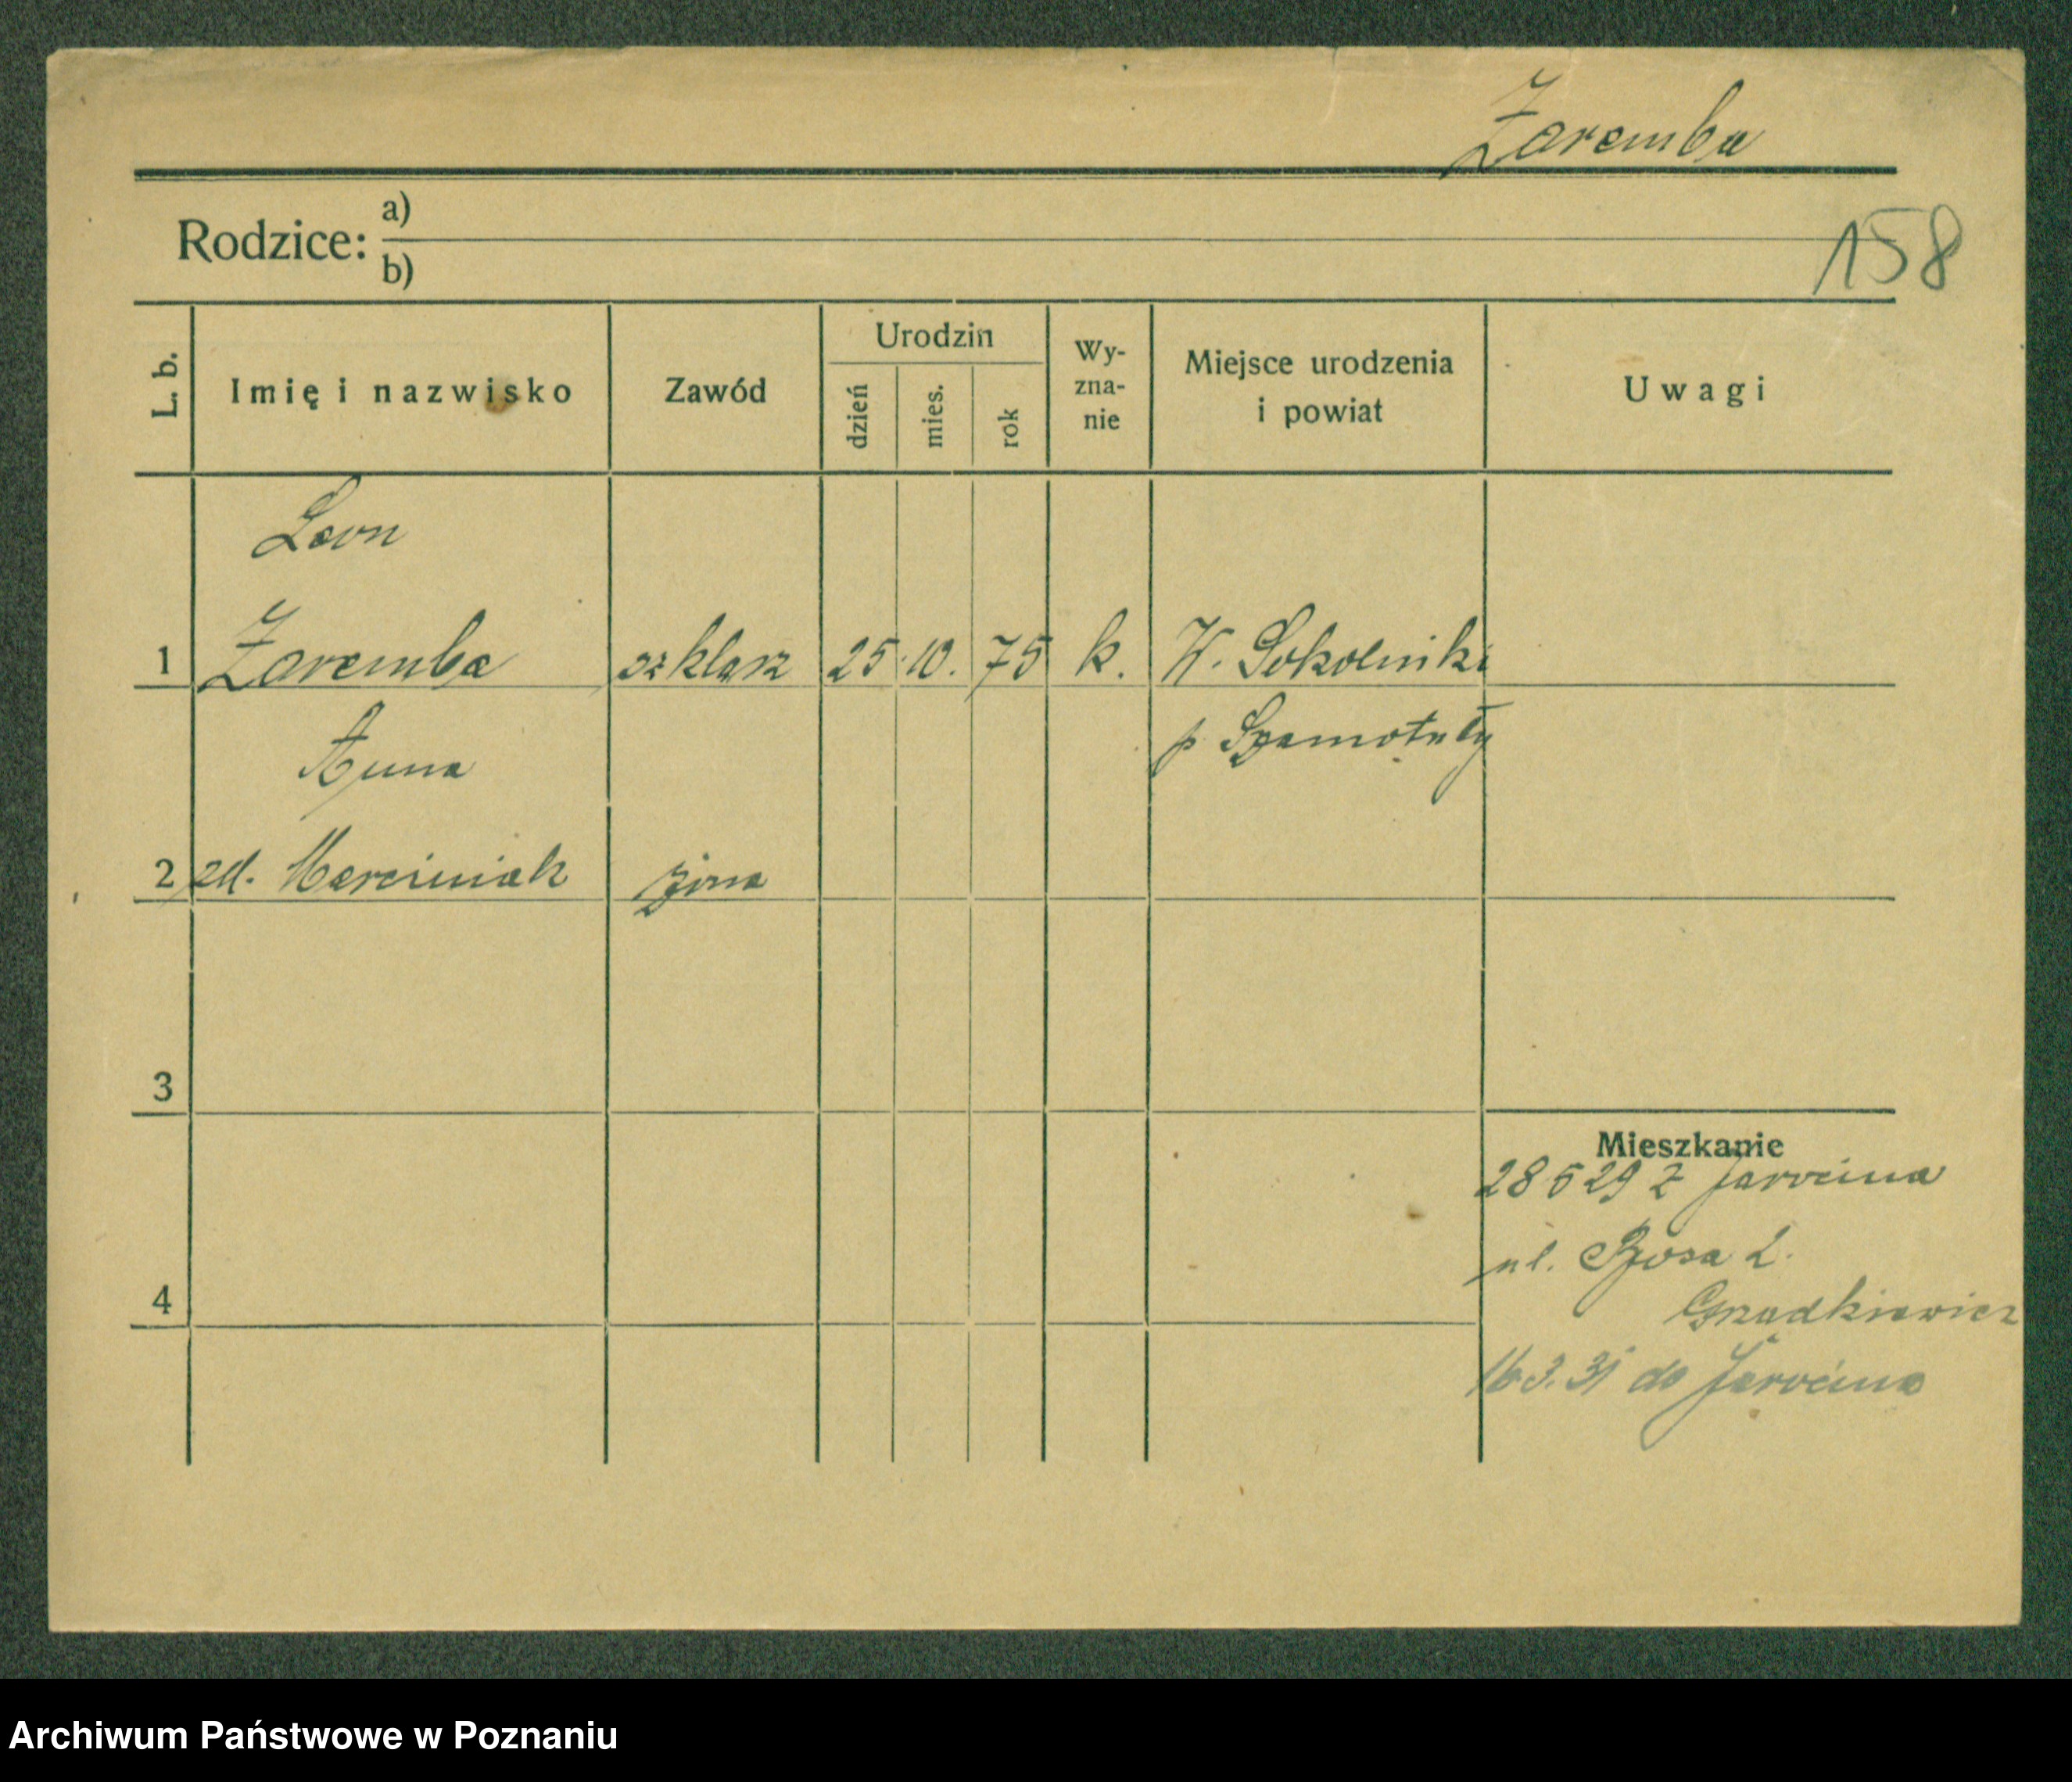 Zaremba
Rodzice:
a)
b)
158
L. b.
Imię i nazwisko
Zawód
Urodzin
dzień
mies.
rok
Wy-
zna-
nie
Miejsce urodzenia
i powiat
Uwagi
Leon
1 Zaremba szklarz 25. 10. 75 k. W. Sokolniki
p Szamotuły
Anna
2 zd. Marciniak żona
3
Mieszkanie
28 5 29 z Jarocina
ul. 2.
4
Grządkiewicz
16 3. 31 do Jarocina
Archiwum Państwowe w Poznaniu